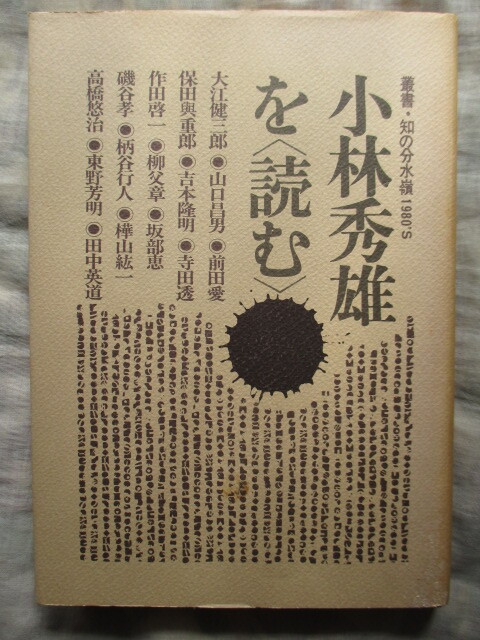 叢書・知の分水嶺1980'S
小林秀雄
を〈読む〉
大江健三郎●山口昌男●前田愛
保田與重郎●吉本隆明●寺田透
作田啓一●柳父章●坂部恵
磯谷孝●柄谷行人●樺山紘一
高橋悠治●東野芳明●田中英道